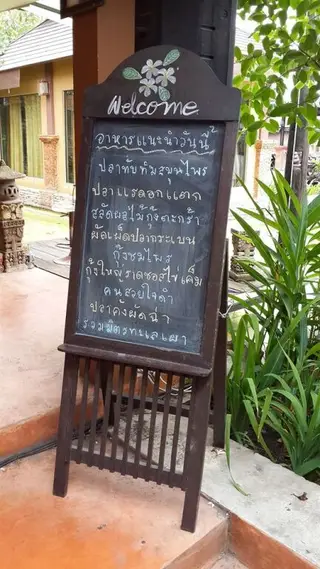 Welcome
อาหารแนะนำวันนี้
ปลาทับทิมสมุนไพร
ปลาแรดลอกแตก
สลัดผลไม้กุ้งตะกร้า
ผัดเผ็ดปลากระเบน
กุ้งชมไพร
กุ้งใหญ่ราดซอสไข่เค็ม
คนสวยใจดำ
ปลาคังผัดฉ่า
รวมมิตรทะเลเผา